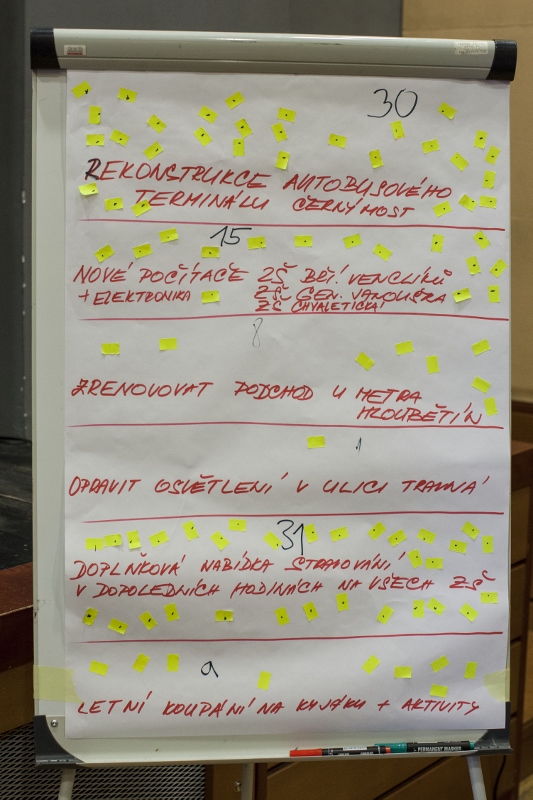 30
REKONSTRUKCE AUTOBUSOVÉHO
TERMINÁLU ČERNÝ MOST
15
NOVÉ POČÍTAČE ZŠ BŘÍ. VENCLÍKŮ
+ ELEKTRONIKA ZŠ GEN. JANOUŠKA
ZŠ CHVALETICKÁ
8
ZRENOVOVAT PODCHOD U METRA
HLOUBĚTÍN
1
OPRAVIT OSVĚTLENÍ V ULICI TRAVNÁ
31
DOPLŇKOVÁ NABÍDKA STRAVOVÁNÍ
V DOPOLEDNÍCH HODINÁCH NA VŠECH ZŠ
9
LETNÍ KOUPÁNÍ NA KYJÁKU + AKTIVITY
PERMANENT MARKER